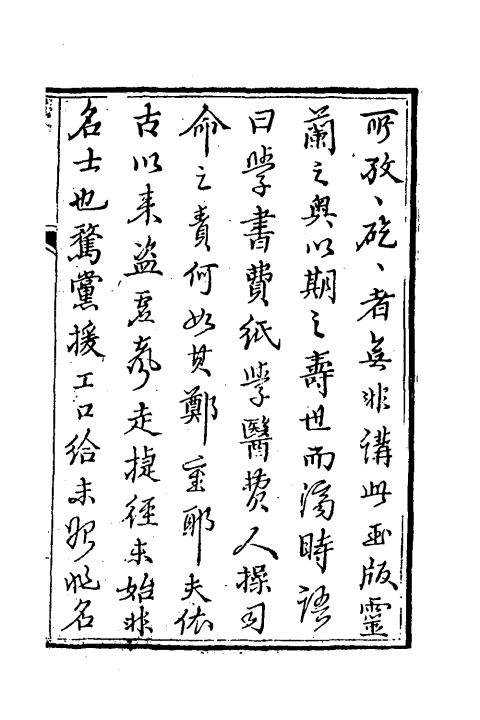 所孜、矻、者無非講此玉版靈
蘭之奧以期之壽世而濟時語
曰學書費紙學醫費人操司
命之責何如其鄭重耶夫依
古以来盗虚聲走捷徑未始非
名士也騖黨援工口給未始非名